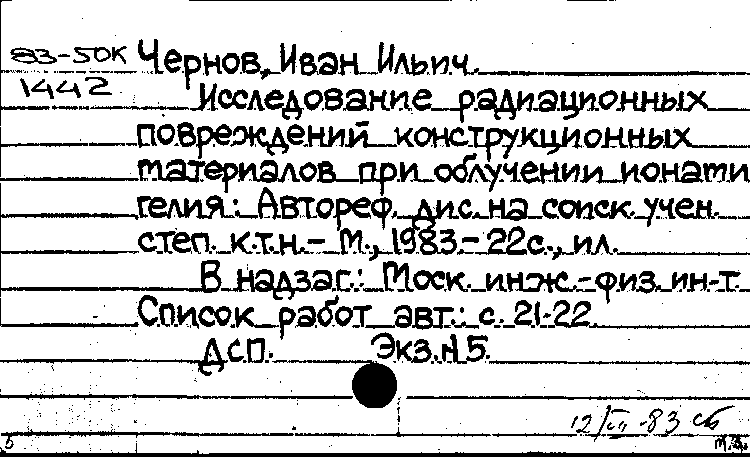 83-50К Чернов, Иван Ильич.
1442 Исследование радиационных
повреждений конструкционных
материалов при облучении ионами
гелия: Автореф. дис. на соиск. учен.
степ. к.т.н.- М., 1983.- 22с., ил.
В надзаг.: Моск. инж.-физ. ин-т.
Список работ авт.: с. 21-22.
ДСП. Экз.N 5.
83 сб
б м.д.